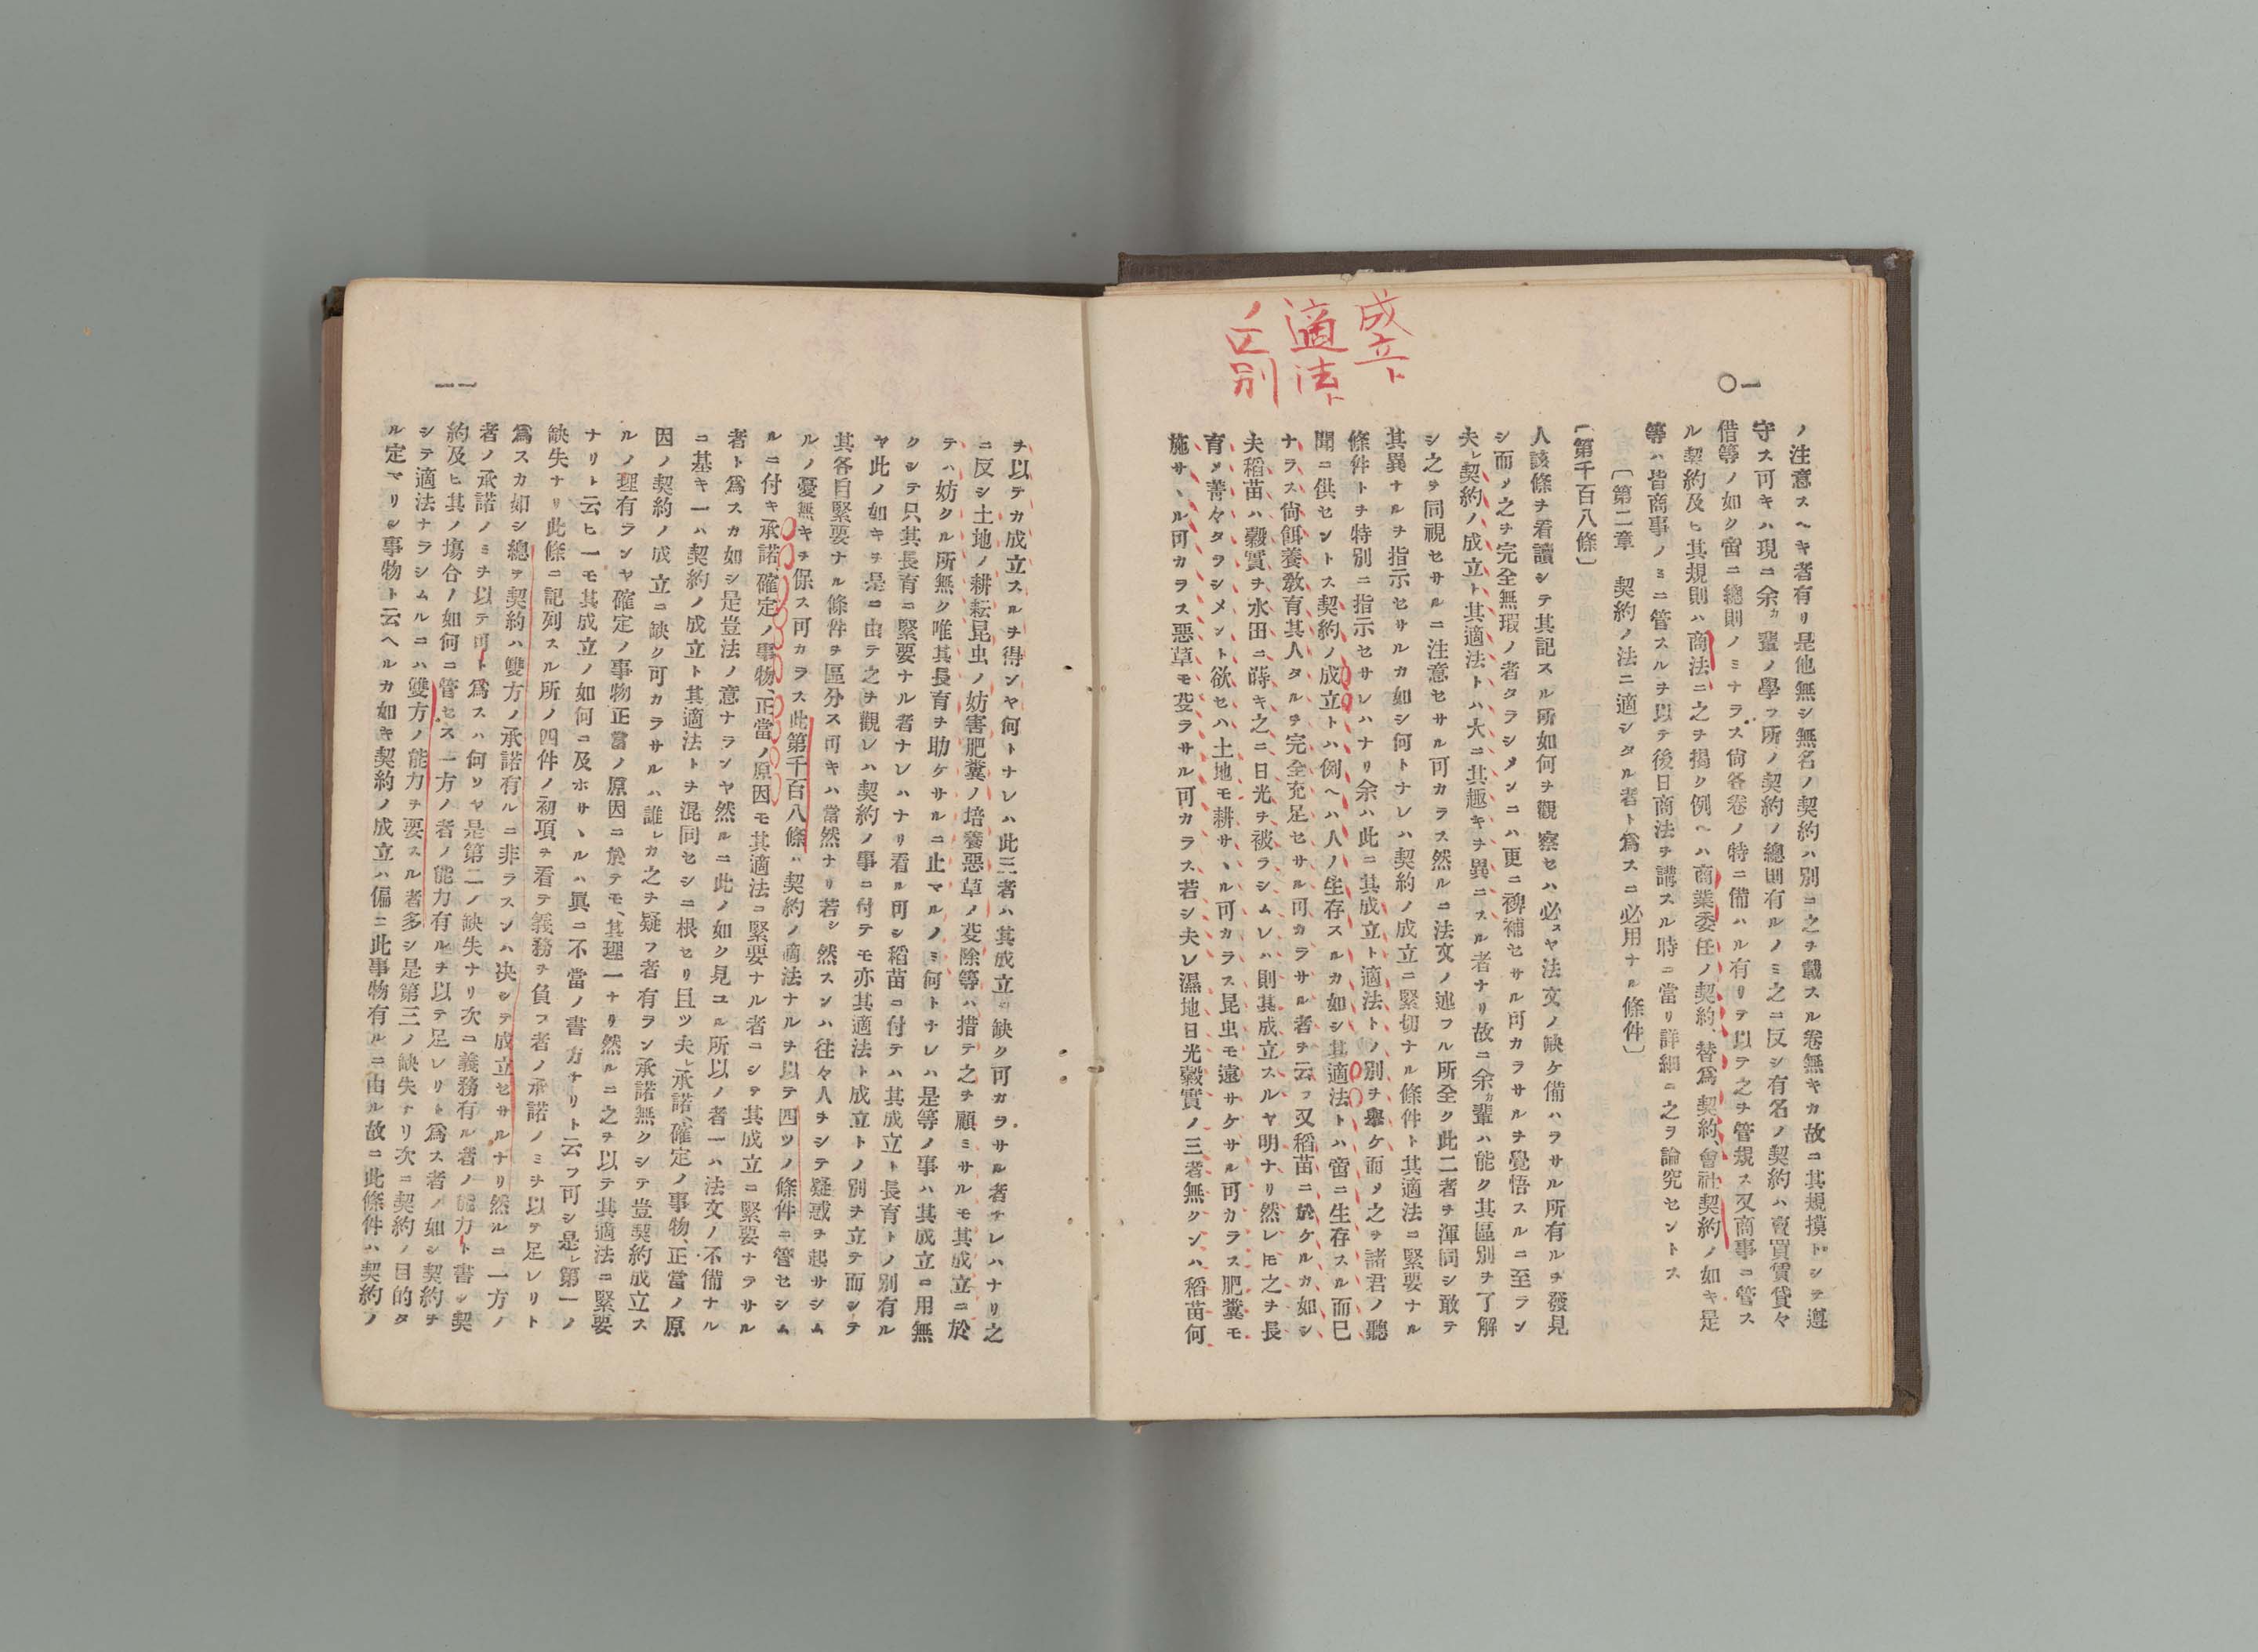 成立ト
適法ト
ノ区別
一〇
ノ注意スヘキ者有リ是他無シ無名ノ契約ハ別ニ之ヲ載スル卷無キカ故ニ其規摸トシテ遵
守ス可キハ現ニ余カ輩ノ學フ所ノ契約ノ總則有ルノミ之ニ反シ有名ノ契約ハ賣買賃貸々
借等ノ如ク啻ニ總則ノミナラス尙各卷ノ特ニ備ハル有リテ以テ之ヲ管規ス又商事ニ管ス
ル契約及ヒ其規則ハ商法ニ之ヲ揭ク例ヘハ商業委任ノ契約、替爲契約、會社契約ノ如キ是
等ハ皆商事ノミニ管スルヲ以テ後日商法ヲ講スル時ニ當リ詳細ニ之ヲ論究セントス
〔第二章 契約ノ法ニ適シタル者ト爲スニ必用ナル條件〕
〔第千百八條〕
人該條ヲ看讀シテ其記スル所如何ヲ觀察セハ必スヤ法文ノ缺ケ備ハラサル所有ルヲ發見
シ而メ之ヲ完全無瑕ノ者タラシメンニハ更ニ裨補セサル可カラサルヲ覺悟スルニ至ラン
夫レ契約ノ成立ト其適法トハ大ニ其趣キヲ異ニスル者ナリ故ニ余カ輩ハ能ク其區別ヲ了解
シ之ヲ同視セサルニ注意セサル可カラス然ルニ法文ノ述フル所全ク此二者ヲ渾同シ敢テ
其異ナルヲ指示セサルカ如シ何トナレハ契約ノ成立ニ緊切ナル條件ト其適法ニ緊要ナル
條件トヲ特別ニ指示セサレハナリ余ハ此ニ其成立ト適法トノ別ヲ擧ケ而メ之ヲ諸君ノ聽
聞ニ供セントス契約ノ成立トハ例ヘハ人ノ生存スルカ如シ其適法トハ啻ニ生存スル而已
ナラス尙餌養敎育其人タルヲ完全充足セサル可カラサル者ヲ云フ又稻苗ニ於ケルカ如シ
夫稻苗ハ穀實ヲ水田ニ蒔キ之ニ日光ヲ被ラシムレハ則其成立スルヤ明ナリ然レモ之ヲ長
育メ菁々タラシメント欲セハ土地モ耕サヽル可カラス昆虫モ遠サケサル可カラス肥糞モ
施サヽル可カラス惡草モ芟ラサル可カラス若シ夫レ濕地日光穀實ノ三者無クンハ稻苗何
一一
ヲ以テカ成立スルヲ得ンヤ何トナレハ此三者ハ其成立ニ缺ク可カラサル者ナレハナリ之
ニ反シ土地ノ耕耘昆虫ノ妨害肥糞ノ培養惡草ノ芟除等ハ措テ之ヲ顧ミサルモ其成立ニ於
テハ妨クル所無ク唯其長育ヲ助ケサルニ止マルノミ何トナレハ是等ノ事ハ其成立ニ用無
クシテ只其長育ニ緊要ナル者ナレハナリ看ル可シ稻苗ニ付テハ其成立ト長育トノ別有ル
ヤ此ノ如キヲ是ニ由テ之ヲ觀レハ契約ノ事ニ付テモ亦其適法ト成立トノ別ヲ立テ而シテ
其各自緊要ナル條件ヲ區分ス可キハ當然ナリ若シ然スンハ往々人ヲシテ疑惑ヲ起サシム
ルノ憂無キヲ保ス可カラス此第千百八條ハ契約ノ適法ナルヲ以テ四ツノ條件ニ管セシム
ルニ付キ承諾、確定ノ事物、正當ノ原因モ其適法ニ緊要ナル者ニシテ其成立ニ緊要ナラサル
者ト爲スカ如シ是豈法ノ意ナランヤ然ルニ此ノ如ク見ユル所以ノ者一ハ法文ノ不備ナル
ニ基キ一ハ契約ノ成立ト其適法トヲ混同セシニ根セリ且ツ夫レ承諾、確定ノ事物、正當ノ原
因ノ契約ノ成立ニ缺ク可カラサルハ誰レカ之ヲ疑フ者有ラン承諾無クシテ豈契約成立ス
ルノ理有ランヤ確定ノ事物正當ノ原因ニ於テモ、其理一ナリ然ルニ之ヲ以テ其適法ニ緊要
ナリト云ヒ一モ其成立ノ如何ニ及ホサヽルハ眞ニ不當ノ書カナリト云フ可シ是レ第一ノ
缺失ナリ此條ニ記列スル所ノ四件ノ初項ヲ看テ義務ヲ負フ者ノ承諾ノミヲ以テ足レリト
爲スカ如シ總テ契約ハ雙方ノ承諾有ルニ非ラスンハ决シテ成立セサルナリ然ルニ一方ノ
者ノ承諾ノミヲ以テ可ト爲スハ何ソヤ是第二ノ缺失ナリ次ニ義務有ル者ノ能力ト書シ契
約及ヒ其ノ塲合ノ如何ニ管セス一方ノ者ノ能力有ルヲ以テ足レリト爲ス者ノ如シ契約ヲ
シテ適法ナラシムルニハ雙方ノ能力ヲ要スル者多シ是第三ノ缺失ナリ次ニ契約ノ目的タ
ル定マリシ事物ト云ヘルカ如キ契約ノ成立ハ偏ニ此事物有ルニ由ル故ニ此條件ハ契約ノ